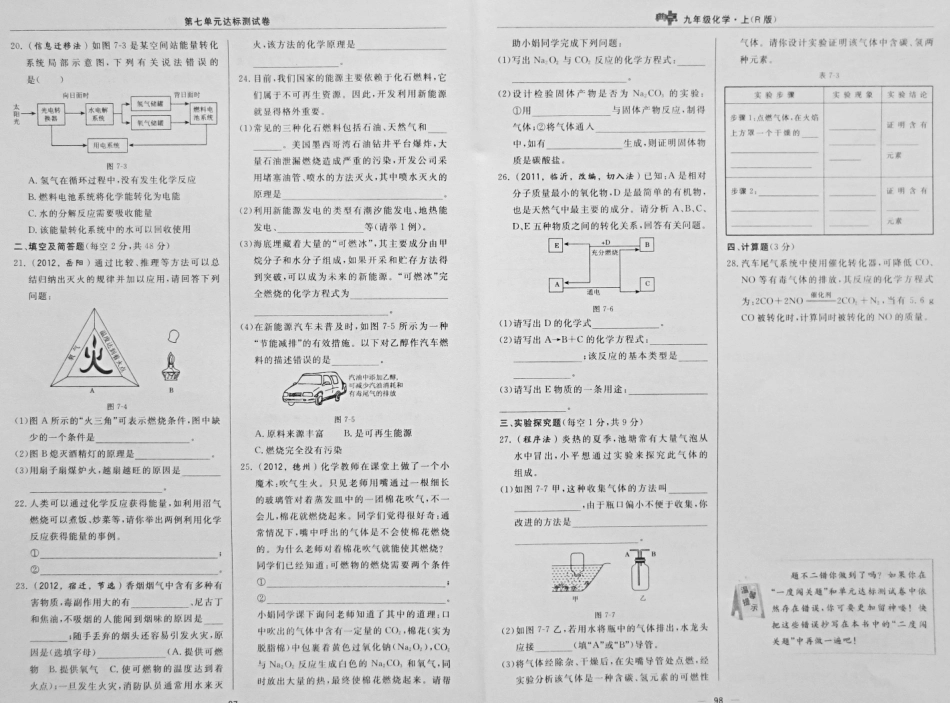 第七单元达标测试卷
20.(信息迁移法)如图7-3是某空间站能量转化
系统局部示意图,下列有关说法错误的
是( )
向日面时 背日面时
太阳光
光电转换器
水电解系统
氢气储罐
氧气储罐
燃料电池系统
用电系统
图7-3
A.氢气在循环过程中,没有发生化学反应
B.燃料电池系统将化学能转化为电能
C.水的分解反应需要吸收能量
D.该能量转化系统中的水可以回收使用
二、填空及简答题(每空2分,共48分)
21.(2012,岳阳)通过比较、推理等方法可以总
结归纳出灭火的规律并加以应用,请回答下列
问题:
氧气
火
温度达到着火点
A B
图7-4
(1)图A所示的“火三角”可表示燃烧条件,图中缺
少的一个条件是________。
(2)图B熄灭酒精灯的原理是________。
(3)用扇子扇煤炉火,越扇越旺的原因是________
________。
22.人类可以通过化学反应获得能量,如利用沼气
燃烧可以煮饭、炒菜等,请你举出两例利用化学
反应获得能量的事例。
①________;
②________。
23.(2012,宿迁,节选)香烟烟气中含有多种有
害物质,毒副作用大的有________、尼古丁
和焦油,不吸烟的人能闻到烟味的原因是____
________;随手丢弃的烟头还容易引发火灾,原
因是(选填字母)________(A.提供可燃
物 B.提供氧气 C.使可燃物的温度达到着
火点);一旦发生火灾,消防队员通常用水来灭
火,该方法的化学原理是________
________。
24.目前,我们国家的能源主要依赖于化石燃料,它
们属于不可再生资源。因此,开发利用新能源
就显得格外重要。
(1)常见的三种化石燃料包括石油、天然气和____
________。美国墨西哥湾石油钻井平台爆炸,大
量石油泄漏燃烧造成严重的污染,开发公司采
用堵塞油管、喷水的方法灭火,其中喷水灭火的
原理是________。
(2)利用新能源发电的类型有潮汐能发电、地热能
发电、________等(请举1例)。
(3)海底埋藏着大量的“可燃冰”,其主要成分由甲
烷分子和水分子组成,如果开采和贮存方法得
到突破,可以成为未来的新能源。“可燃冰”完
全燃烧的化学方程式为________
________。
(4)在新能源汽车未普及时,如图7-5所示为一种
“节能减排”的有效措施。以下对乙醇作汽车燃
料的描述错误的是________。
汽油中添加乙醇,
可减少汽油消耗和
有毒尾气的排放
图7-5
A.原料来源丰富 B.是可再生能源
C.燃烧完全没有污染
25.(2012,德州)化学教师在课堂上做了一个小
魔术:吹气生火。只见老师用嘴通过一根细长
的玻璃管对着蒸发皿中的一团棉花吹气,不一
会儿,棉花就燃烧起来。同学们觉得很好奇:通
常情况下,嘴中呼出的气体是不会使棉花燃烧
的。为什么老师对着棉花吹气就能使其燃烧?
同学们已经知道:可燃物的燃烧需要两个条件
①________;
②________。
小娟同学课下询问老师知道了其中的道理:口
中吹出的气体中含有一定量的CO₂,棉花(实为
脱脂棉)中包裹着黄色过氧化钠(Na₂O₂),CO₂
与Na₂O₂反应生成白色的Na₂CO₃和氧气,同
时放出大量的热,最终使棉花燃烧起来。请帮
97
典中点 九年级化学·上(R版)
助小娟同学完成下列问题:
(1)写出Na₂O₂与CO₂反应的化学方程式:____
________。
(2)设计检验固体产物是否为Na₂CO₃的实验:
①用________与固体产物反应,制得
气体;②将气体通入________
中,如有________生成,则证明固体物
质是碳酸盐。
26.(2011,临沂,改编,切入法)已知:A是相对
分子质量最小的氧化物,D是最简单的有机物,
也是天然气中最主要的成分。请分析A、B、C、
D、E五种物质之间的转化关系,回答有关问题。
E +D 充分燃烧 B
A 通电 C
图7-6
(1)请写出D的化学式________。
(2)请写出A→B+C的化学方程式:________
________;该反应的基本类型是____
________。
(3)请写出E物质的一条用途:________
________。
三、实验探究题(每空1分,共9分)
27.(程序法)炎热的夏季,池塘常有大量气泡从
水中冒出,小平想通过实验来探究此气体的
组成。
(1)如图7-7甲,这种收集气体的方法叫________
________,由于瓶口偏小不便于收集,你
改进的方法是________
________。
A B
甲 乙
图7-7
(2)如图7-7乙,若用水将瓶中的气体排出,水龙头
应接________(填“A”或“B”)导管。
(3)将气体经除杂、干燥后,在尖嘴导管处点燃,经
实验分析该气体是一种含碳、氢元素的可燃性
气体。请你设计实验证明该气体中含碳、氢两
种元素。
表7-3
实验步骤 实验现象 实验结论
步骤1:点燃气体,在火焰
上方罩一个干燥的____
________
证明含有
________
元素
步骤2:________
________
证明含有
________
元素
四、计算题(3分)
28.汽车尾气系统中使用催化转化器,可降低CO、
NO等有毒气体的排放,其反应的化学方程式
为:2CO+2NO 催化剂 2CO₂+N₂,当有5.6 g
CO被转化时,计算同时被转化的NO的质量。
温馨提示
题不二错你做到了吗?如果你在
“一度闯关题”和单元达标测试卷中依
然存在错误,你可要更加留神喽!快
把这些错误抄写在本书中的“二度闯
关题”中再做一遍吧!
98